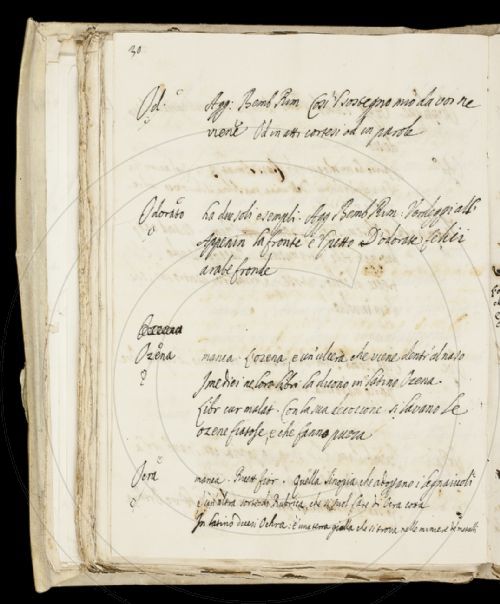 30
Od. Agg: Bemb Rim Cosi 'l sostegno mio da voi ne
viene Od in atti cortesi od in parole
Odorato ha due soli esempli. Agg Bemb Rim:
Appenin la fronte e 'l petto D'odorate felici
arabe fronde
Ozena manca. L'ozena e un ulcera che viene dentr'al naso
I medici ne loro libri la dicono in latino Ozena
Libr cur malat. Con la sua decozione si lavano le
ozene fiatose, e che fanno puzza
Ocra manca. Quella Sinopia che adoprano i legnaiuoli
e un altra sorte di Rubrica, che si suol fare di Ocra cotta
In latino dicesi Ochra: è una terra gialla che si trova nelle miniere de metalli